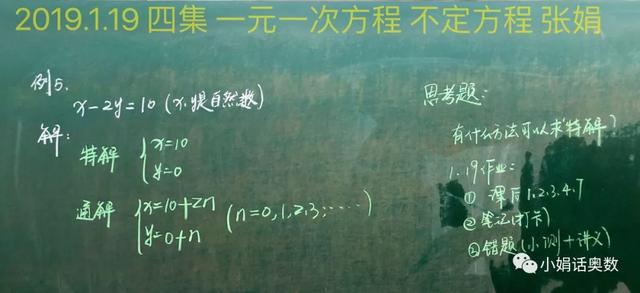 2019.1.19 四集 一元一次方程 不定方程 张娟
例5.
x-2y=10 (x.y是自然数)
解:
特解 { x=10
y=0
通解 { x=10+2n
y=0+n
(n=0,1,2,3,……)
思考题:
有什么方法可以求"特解"?
1.19作业:
① 课后1.2.3.4.7
② 笔记(打卡)
③ 错题(小测+讲义)
小娟话奥数